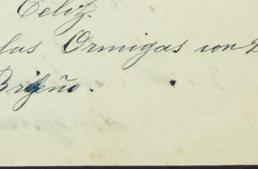 Feliz.
las Ormigas con
Briseño.